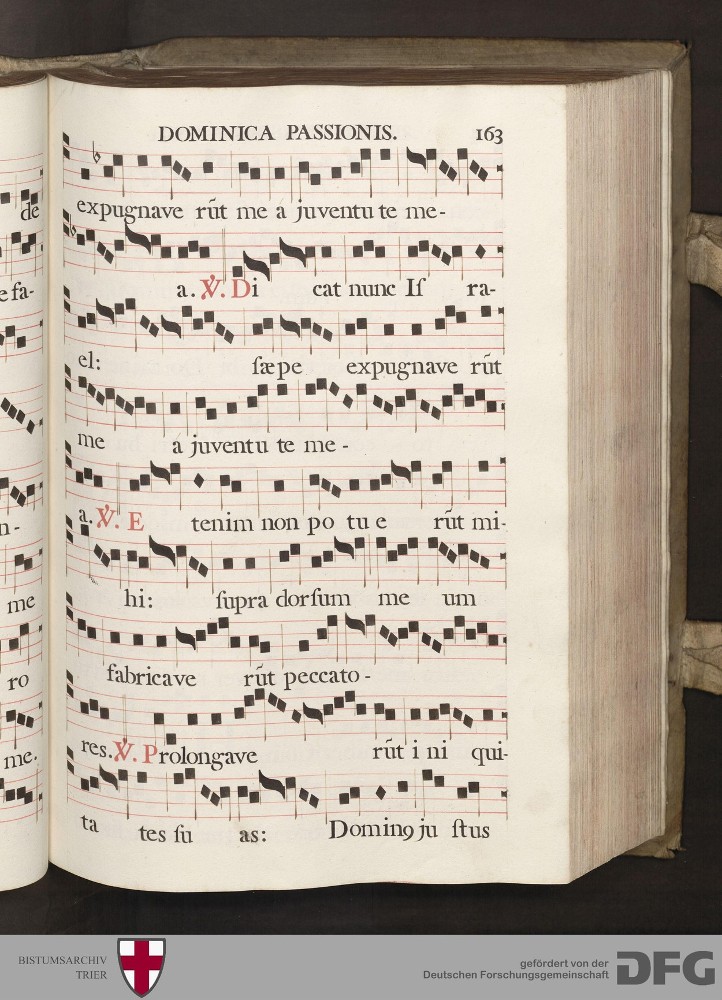 DOMINICA PASSIONIS. 163
expugnave rũt me á juventu te me-
a. ℣. Di cat nunc Iſ ra-
el: ſæpe expugnave rũt
me á juventu te me-
a. ℣. E tenim non po tu e rũt mi-
hi: ſupra dorſum me um
fabricave rũt peccato-
res. ℣. Prolongave rũt i ni qui-
ta tes ſu as: Domin9 ju ſtus
de
e fa-
n-
me
ro
me.
BISTUMSARCHIV
TRIER
gefördert von der
Deutschen Forschungsgemeinschaft
DFG